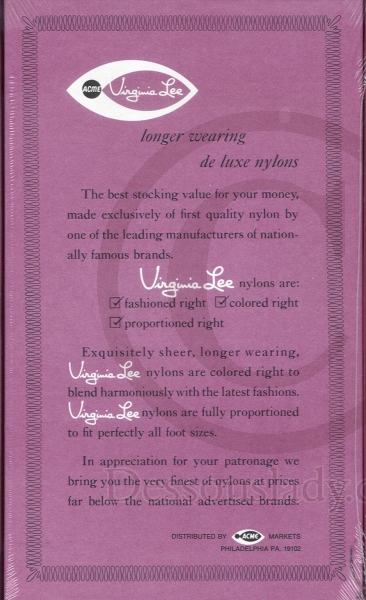 ACME Virginia Lee
longer wearing
de luxe nylons
The best stocking value for your money,
made exclusively of first quality nylon by
one of the leading manufacturers of nation-
ally famous brands.
Virginia Lee nylons are:
☑ fashioned right ☑ colored right
☑ proportioned right
Exquisitely sheer, longer wearing,
Virginia Lee nylons are colored right to
blend harmoniously with the latest fashions.
Virginia Lee nylons are fully proportioned
to fit perfectly all foot sizes.
In appreciation for your patronage we
bring you the very finest of nylons at prices
far below the national advertised brands.
DISTRIBUTED BY ACME MARKETS
PHILADELPHIA PA. 19102